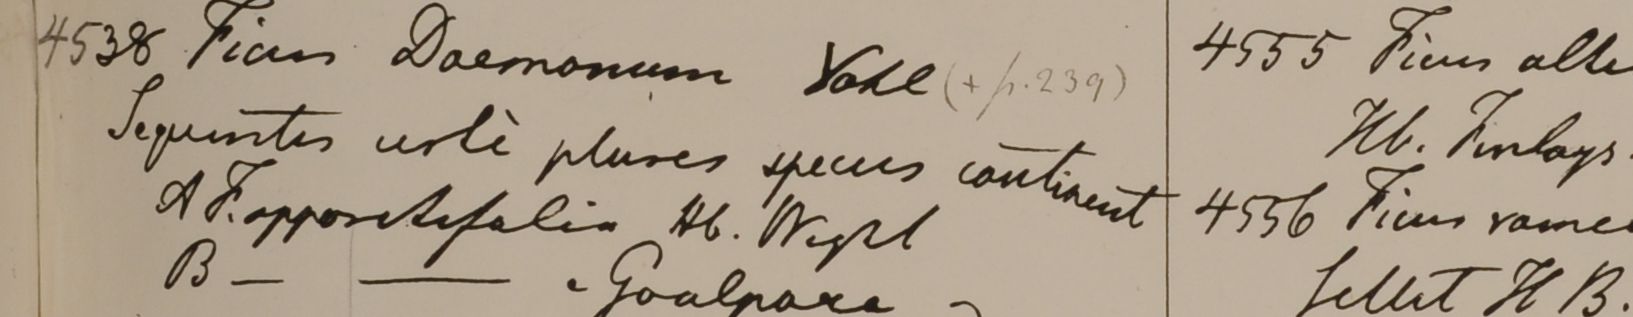 4538 Ficus Daemonum Vahl (+ p. 239)
Sequentes certè plures species continent
A F. oppositifolia Hb. Wight
B — —— Goalpara
4555 Ficus
Hb. Finlays.
4556 Ficus
H B.